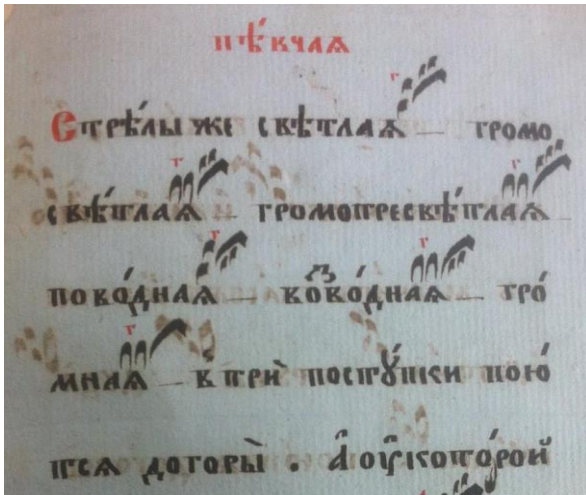 пѣ́вчаѧ
Стрѣ́лы же свѣтлаѧ — громо
свѣ́тлаѧ — громопресвѣ́тлаѧ —
пово́днаѧ — вово́днаѧ — гро́
мнаѧ — в трѝ посту́пки пою́
тсѧ догоры̀ . А҆ оу҆ кото́рой